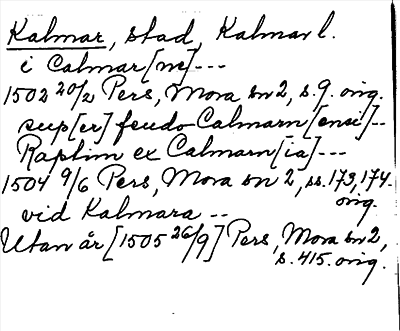 Kalmar, stad, Kalmar l.
i Calmar[ne]---
1502 20/2 Pers, Mora sn 2, s.9. orig.
sup[er] feudo Calmarn[ensi]--
Raptim ex Calmarn[ia]---
1504 9/6 Pers, Mora sn 2, ss. 173, 174. orig.
vid Kalmara --
Utan år [1505 26/9] Pers, Mora sn 2,
s. 415. orig.